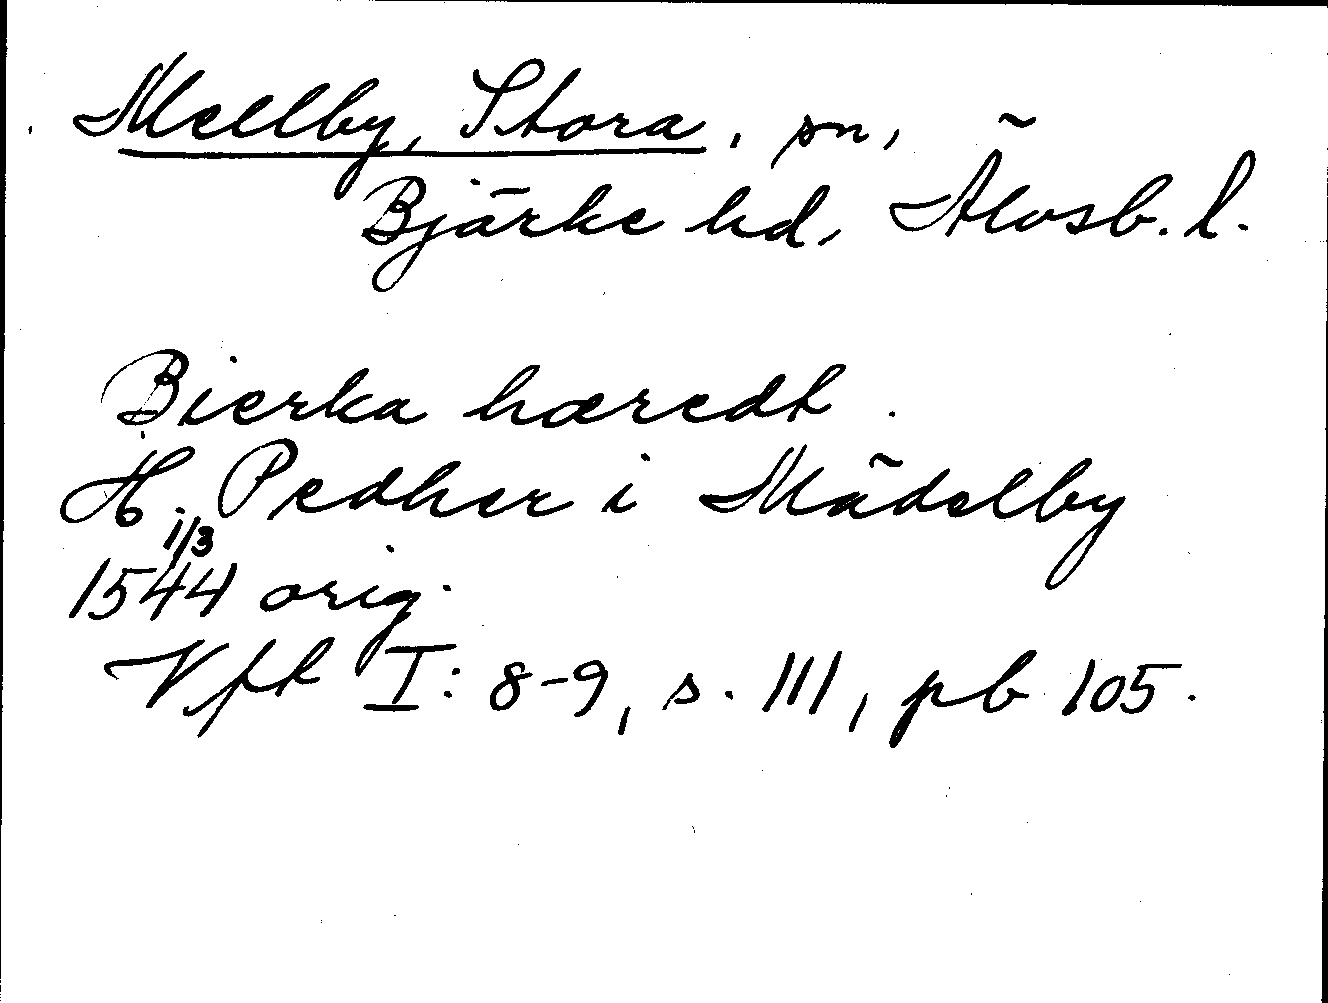 Mellby, Stora, sn,
Bjärke hd, Älvsb. l.
Bierka hæredt.
H. Pedher i Mädelby
1/3
1544 orig.
Vfk I: 8-9, s. 111, pb 105.